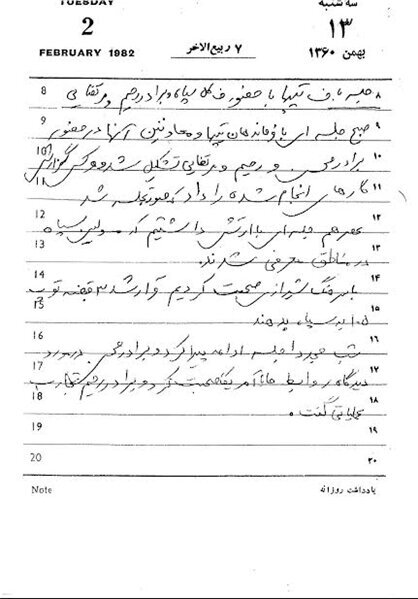 TUESDAY
سه شنبه
2
۱۳
FEBRUARY 1982
۷ ربیع الاخر
بهمن ۱۳۶۰
8 جلسه با ف تیپها با حضور ف کل سپاه و برادر رحیم و ۸
9 صبح جلسه ای با فرماندهان تیپها و معاونین آنها در حضور ۹
10 برادر و رحیم و تشکیل شد و گزارش ۱۰
11 کارهای انجام شده را داد جلسه شد ۱۱
12 عصر هم جلسه ای با ارتش داشتیم که سپاه ۱۲
13 در مناطق معرفی شدند. ۱۳
14 با سرهنگ شیرازی صحبت کردیم قرار شد ۳ قبضه توپ ۱۴
15 ۱۰۵ به سپاه بدهند ۱۵
16 شب مجددا جلسه ادامه پیدا کرد و برادر در مورد ۱۶
17 دیدگاه روابط ما با آمریکا صحبت کرد و برادر رحیم تجارب ۱۷
18 عملیاتی گفت. ۱۸
19 ۱۹
20 ۲۰
Note یادداشت روزانه